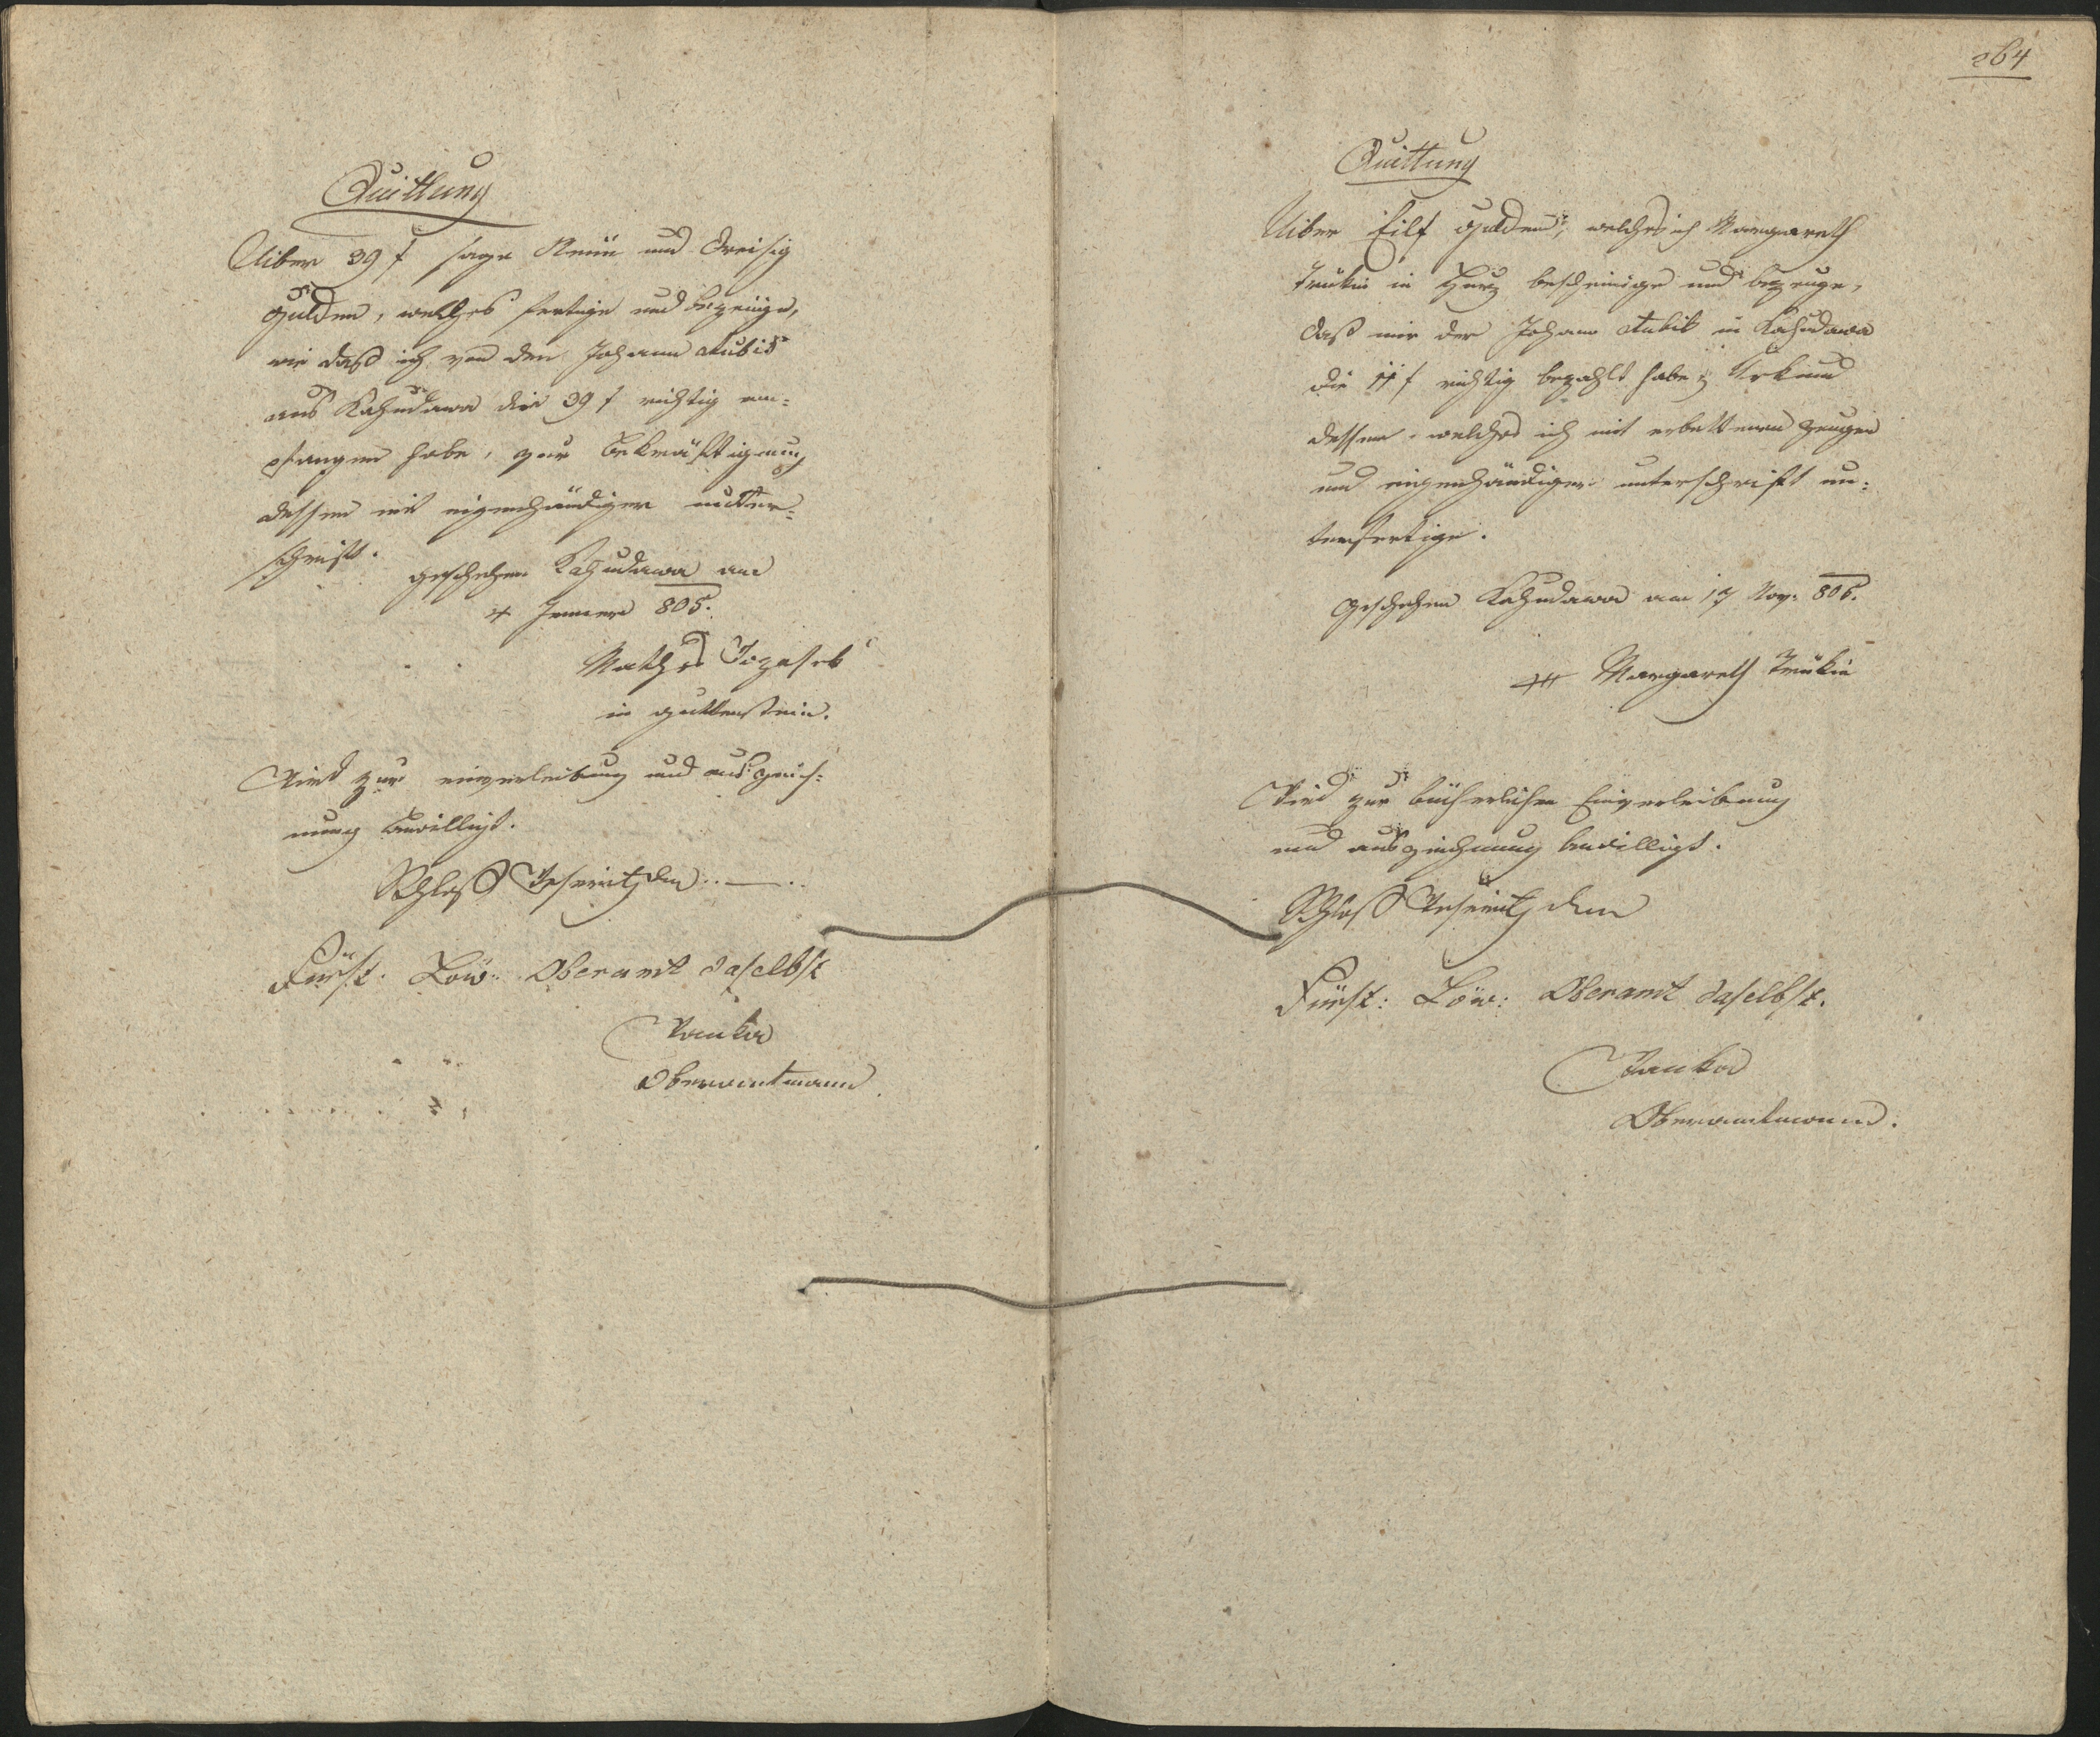 Quittung
Uiber 39 f sage Neün und Dreisig
Gulden, welches fertige und bezeüge,
wie daß ich von den Johann Kubik
aus Kahudawa die 39 f richtig em-
pfangen habe, zur Bekräftigung
dessen mit eigenhändiger unter-
schrift.
geschehen Kahudawa am
4 Jenner 805.
Mathes
in Guttenstein.
Wird zur einverleibung und auszeich-
nung bewilligt.
Schloß den
Fürst. Löw. Oberamt daselbst
Wanka
Oberamtmann
264
Quittung
Uiber Eilf Gulden, welches ich Margareth
Trükin in Hurz bescheinige und bezeuge,
daß mir der Johann Kubik in Kahudawa
die 11 f richtig bezahlt habe; Urkund
dessen, welches ich mit erbettenen Zeugen
und eigenhändiger unterschrift un-
terfertige.
Geschehen Kahudawa am 17 Nov. 806.
+++ Margareth Trükin
Wird zur bücherlichen Einverleibung
und auszeichnung bewilligt.
Schloß den
Fürst: Löw: Oberamt daselbst.
Wanka
Oberamtmann.